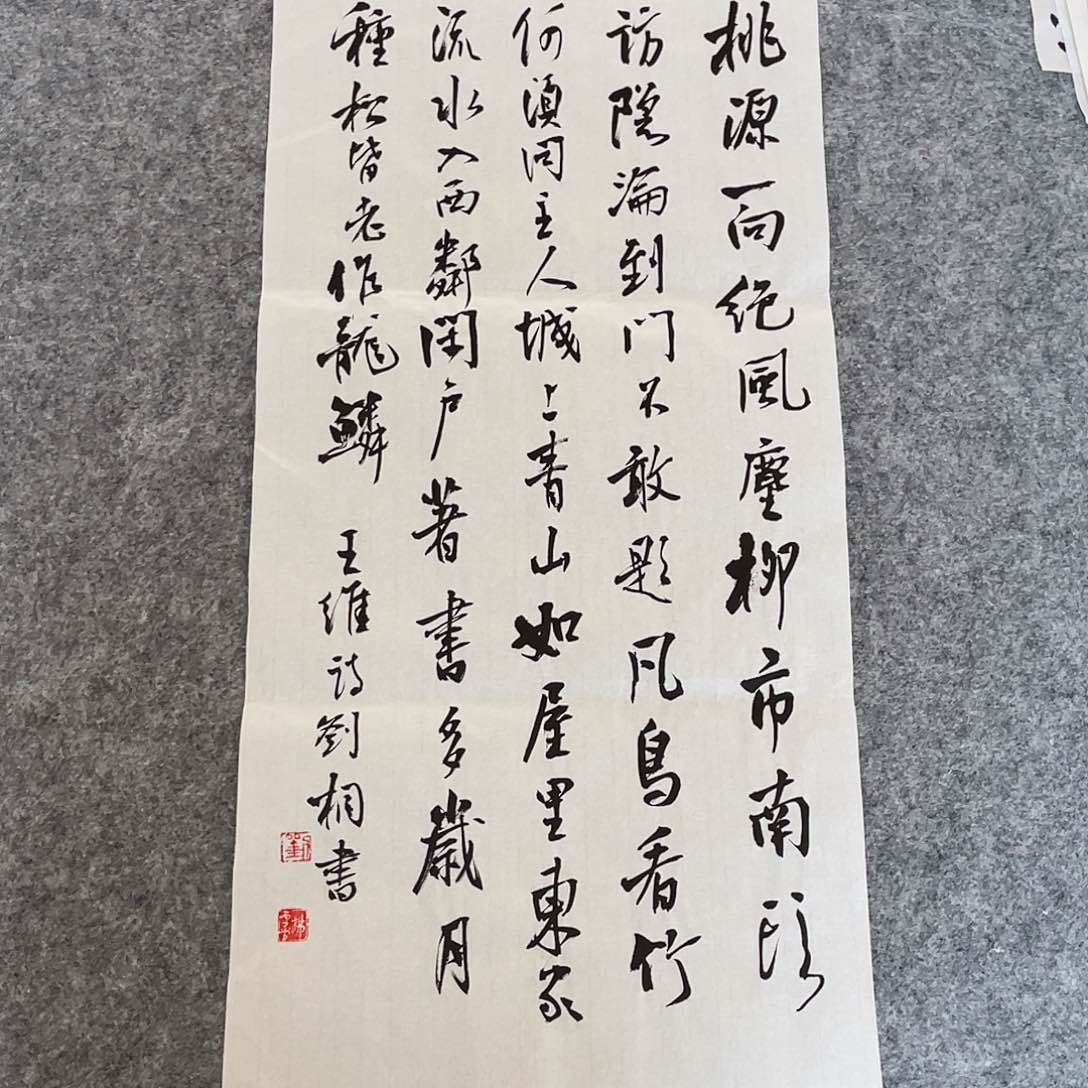 桃源一向絕風塵柳市南頭
訪隱淪到門不敢題凡鳥看竹
何須問主人城上青山如屋里東家
流水入西鄰閉户著書多歲月
種松皆老作龍鱗 王維詩劉桐書
劉